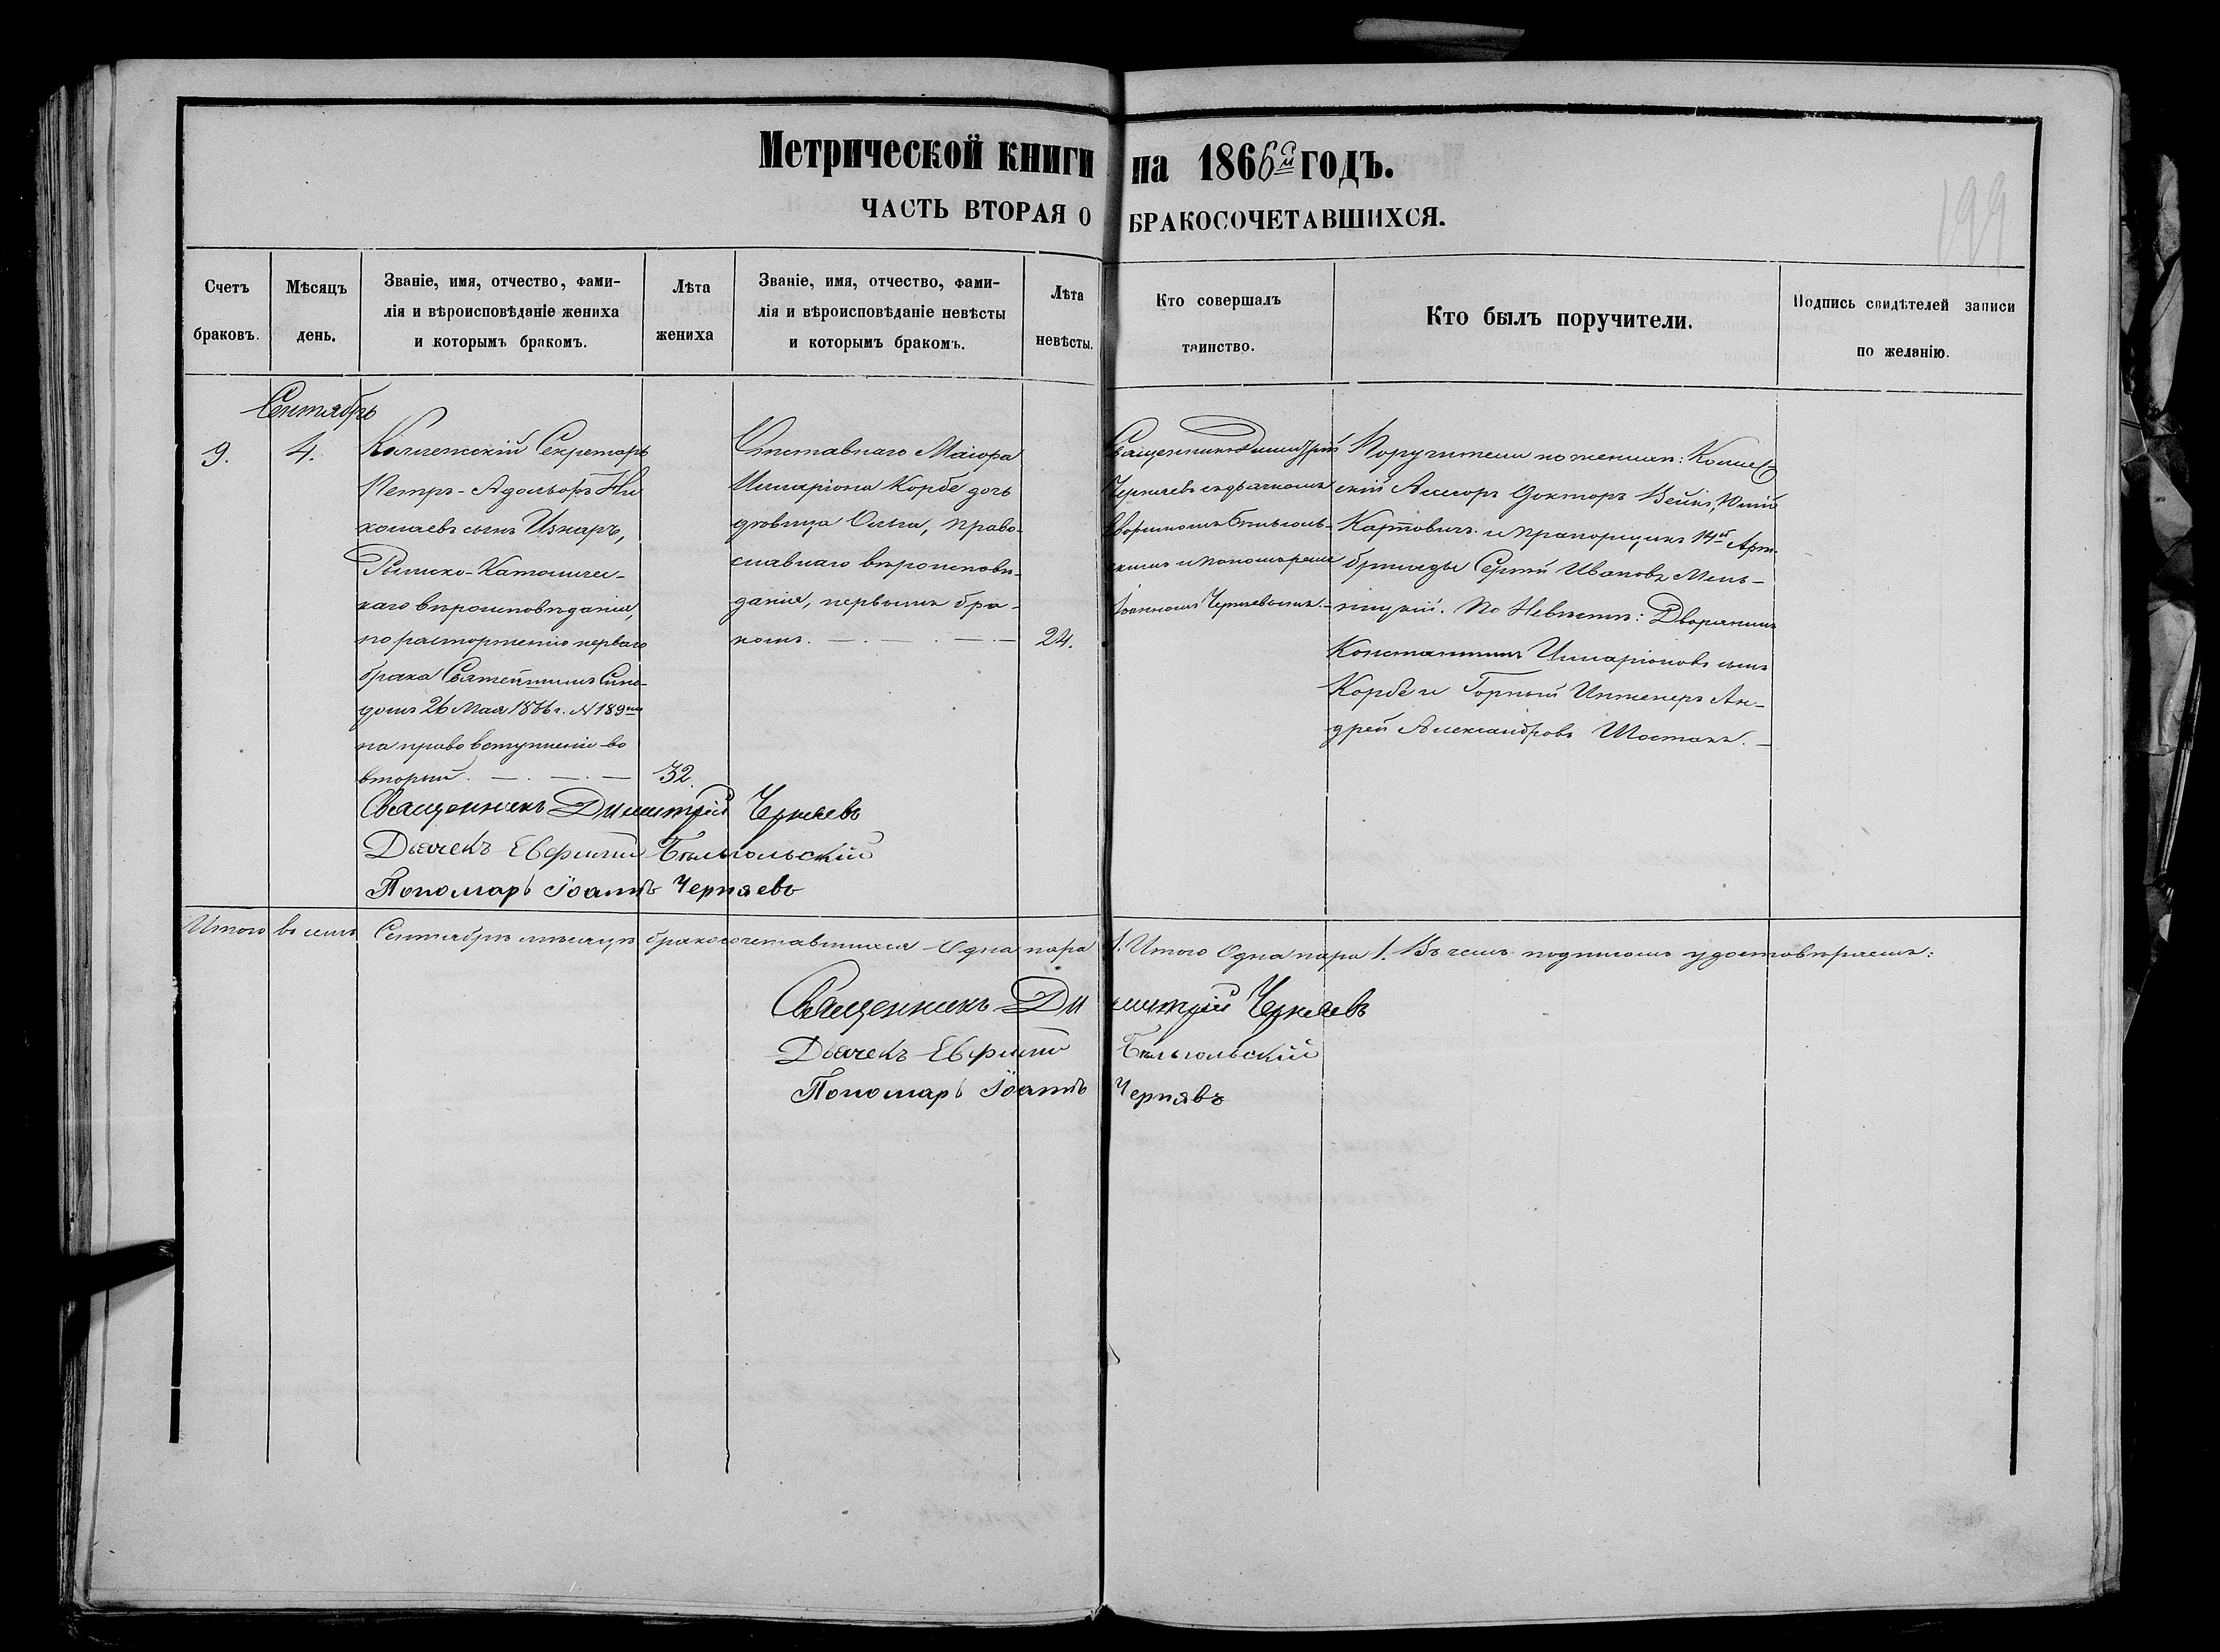 Метрической книги на 1866й годъ.
ЧАСТЬ ВТОРАЯ О БРАКОСОЧЕТАВШИХСЯ.
199
Счетъ браковъ.
Мѣсяцъ день.
Званіе, имя, отчество, фами-
лія и вѣроисповѣданіе жениха
и которымъ бракомъ.
Лѣта жениха
Званіе, имя, отчество, фами-
лія и вѣроисповѣданіе невѣсты
и которымъ бракомъ.
Лѣта невѣсты.
Кто совершалъ
таинство.
Кто былъ поручители.
Подпись свидѣтелей записи
по желанію.
Сентябрь
9.
4.
Коллежскій Секретарь
Петръ-Адольфъ Ни
колаевъ сынъ
Римско-Католичес-
каго вѣроисповѣданія,
по расторженію перваго
брака Святейшимъ Сѵно-
домъ 26 Мая 1866 г. № 189
на право вступленія во
вторый.
32.
Отставнаго Маіора
Илларіона Корбе дочь
дѣвица Ольга, право-
славнаго вѣроисповѣ-
данія, первымъ бра-
комъ.
24.
Священникъ Димитрій
Черняевъ съ дьячкомъ
Евфиміемъ Бѣльголь-
скимъ и пономаремъ
Іоанномъ Черняевымъ.
Поручители по женихѣ: Коллеж-
скій Ассесоръ Докторъ Юлій
и Прапорщикъ 14й Арт.
бригады Сергѣй Ивановъ Мель-
ницкій. По Невѣстѣ: Дворянинъ
Константинъ Илларіоновъ сынъ
Корбе и Горный Инженеръ Ан-
дрей Александровъ Шостакъ.
Священникъ Димитрій Черняевъ
Дьячекъ Евфимій Бѣльгольскій
Пономарь Іоаннъ Черняевъ
Итого въ семъ Сентябрѣ мѣсяцѣ бракосочетавшихся Одна пара 1. Итого Одна пара 1. Въ чемъ подписомъ удостовѣряемъ:
Священникъ Димитрій Черняевъ
Дьячекъ Евфимій Бѣльгольскій
Пономарь Іоаннъ Чернявъ